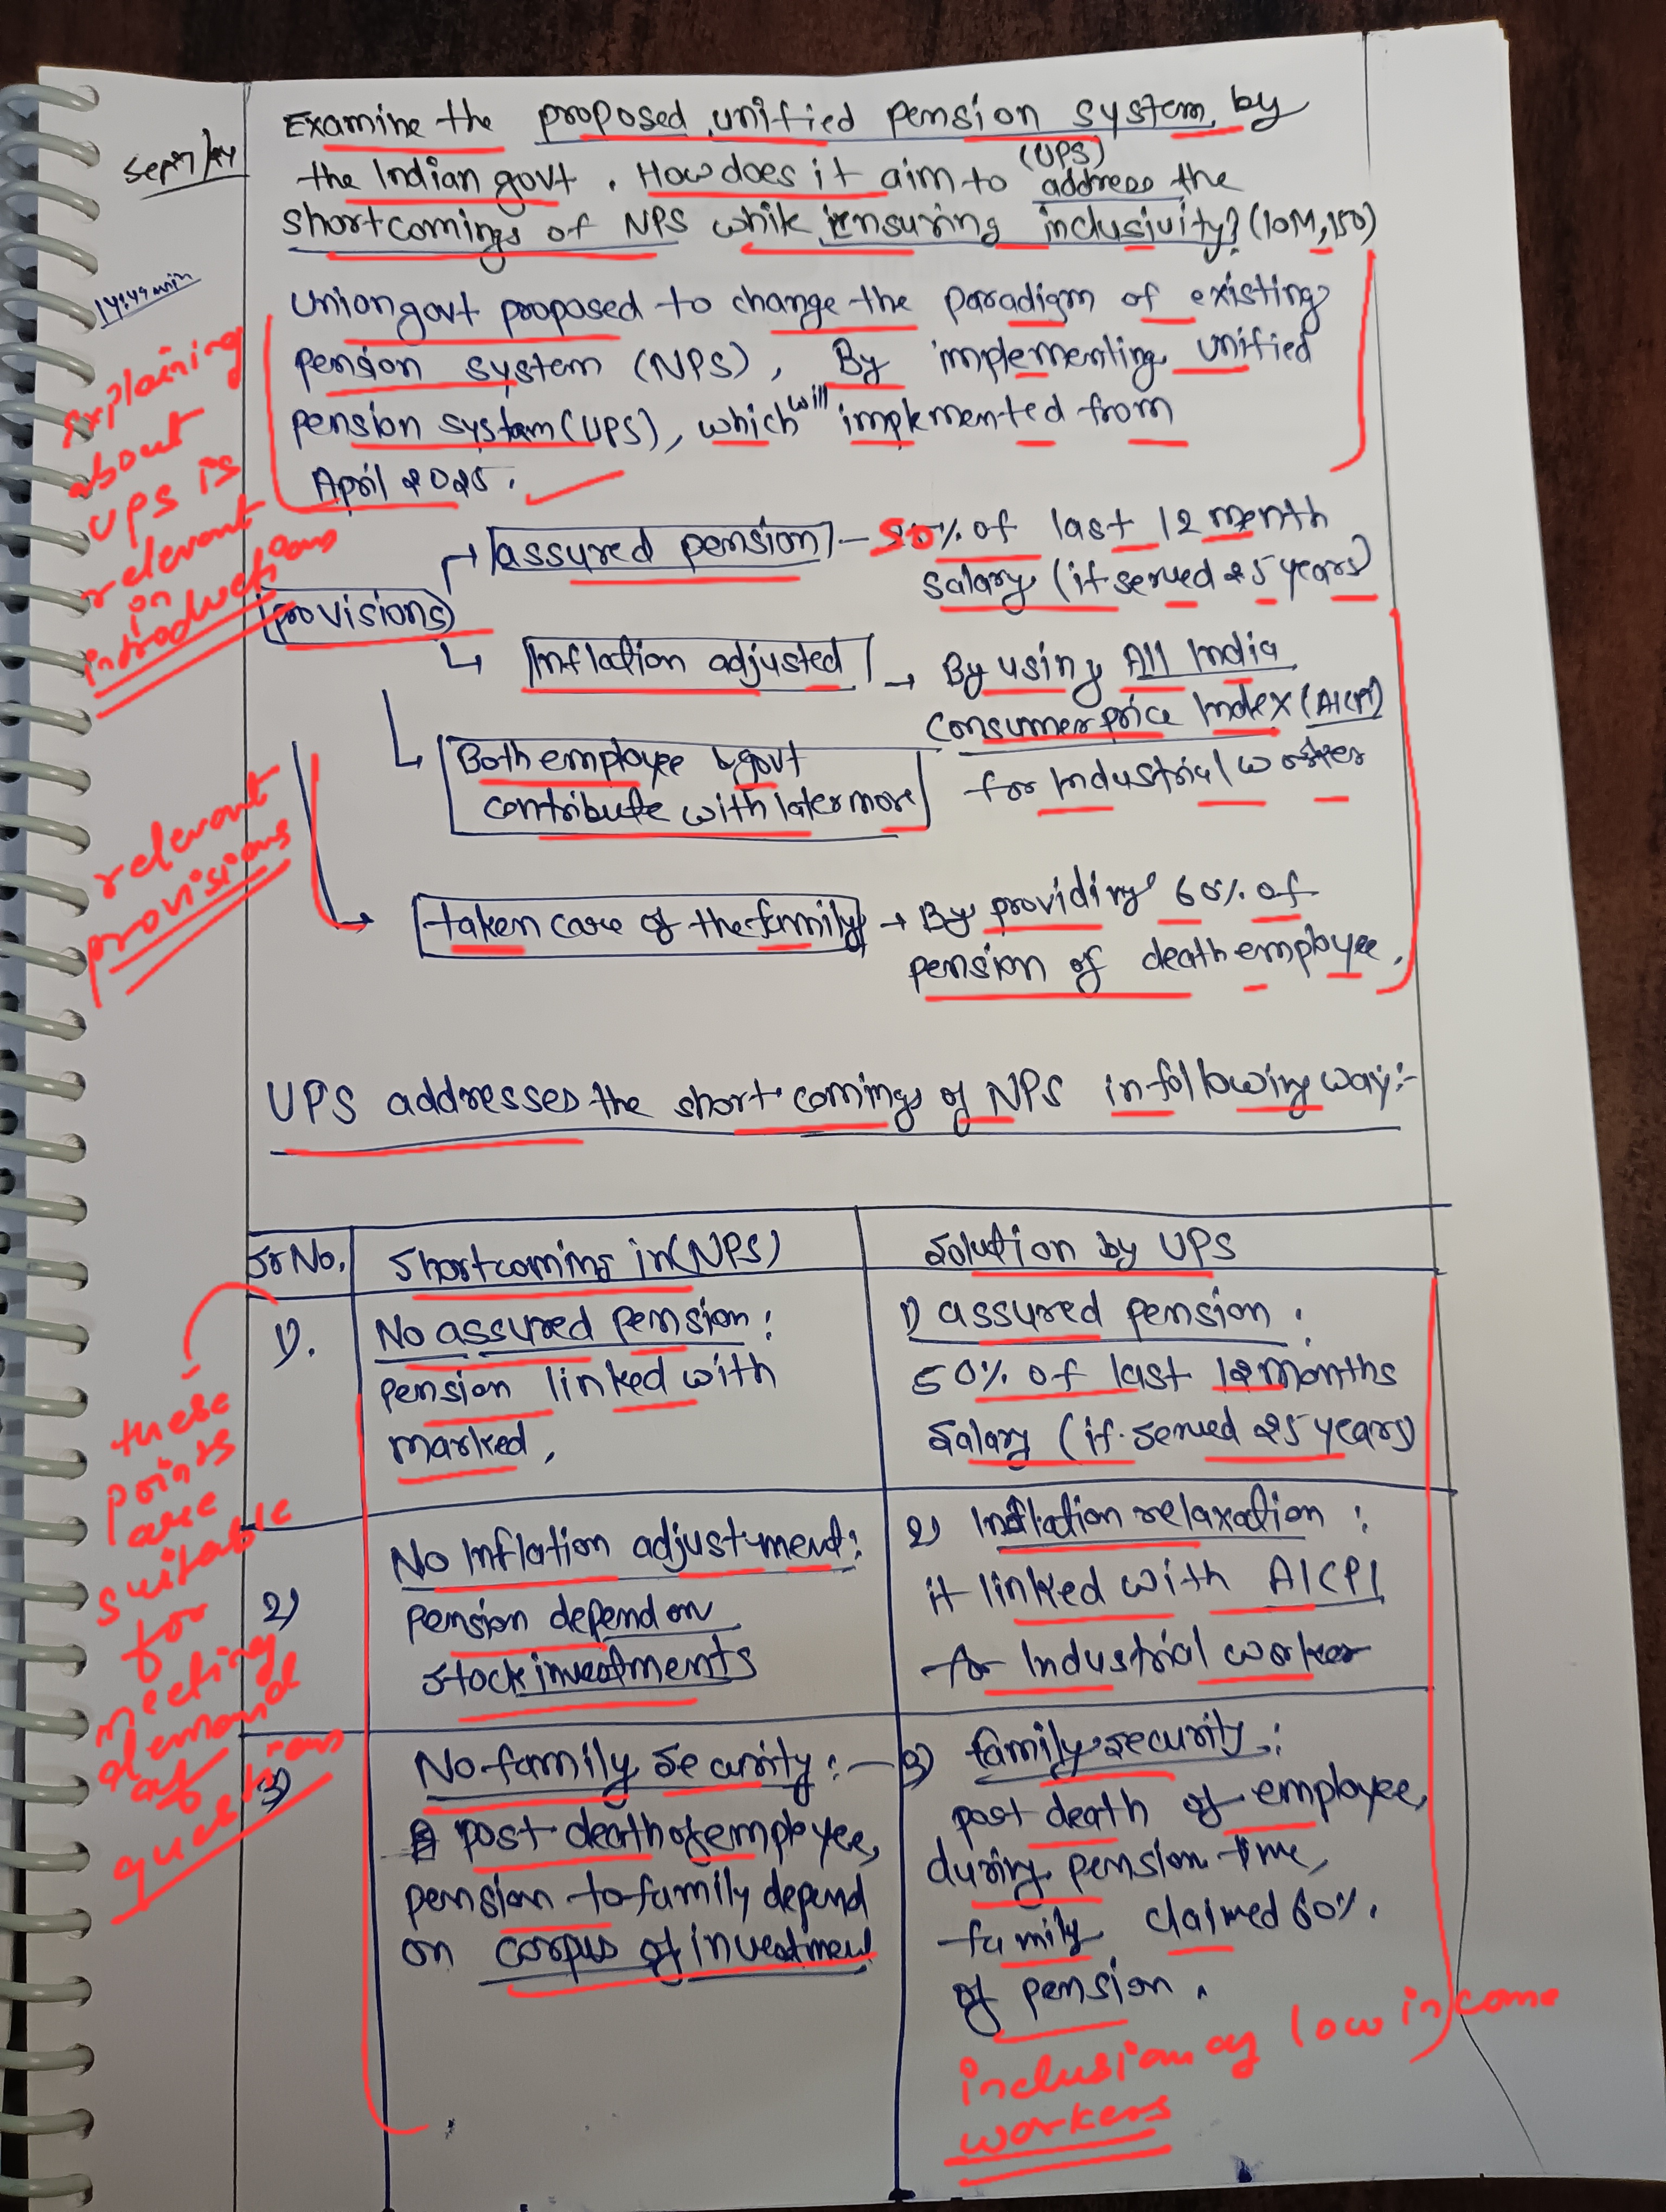 Sep 7/24
Examine the proposed unified pension system by
the Indian govt. How does it aim to (UPS) address the
shortcomings of NPS while ensuring inclusivity? (10M,150)
14:49 min
Union govt proposed to change the paradigm of existing
pension system (NPS), By implementing unified
pension system (UPS), which will implemented from
April 2025.
explaining
about
UPS is
relevant
in
introductions
provisions
assured pension - 50% of last 12 month
salary (if served 25 years)
Inflation adjusted → By using All India
Consumer price Index (AICPI)
for Industrial worker
Both employee & govt
contribute with later more
relevant
provisions
taken care of the family → By providing 60% of
pension of death employee.
UPS addresses the shortcomings of NPS in following way:-
Sr No.
Shortcoming in (NPS)
Solution by UPS
1).
No assured pension:
pension linked with
marked,
1) assured pension:
50% of last 12 months
salary (if served 25 years)
2)
No Inflation adjustment:
pension depend on
stock investments
2) Inflation relaxation:
it linked with AICPI
for Industrial worker
these
points
are
suitable
for
meeting
demand
of
questions
3)
No family security:-
post death of employee,
pension to family depend
on corpus of investment
3) family security:
post death of employee,
during pension time,
family claimed 60%
of pension.
inclusion of low income
workers